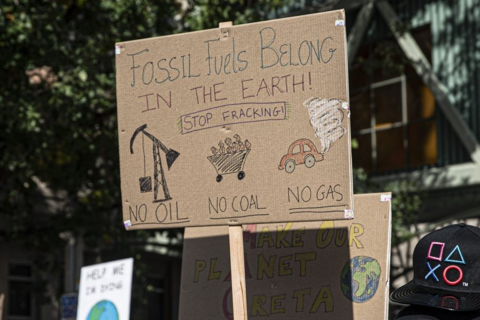 FOSSIL Fuels BELONG
IN THE EARTH!
STOP FRACKING!
NO OIL
NO COAL
NO GAS
MAKE OUR
PLANET
GRETA
HELP ME
I'M DYING
TM